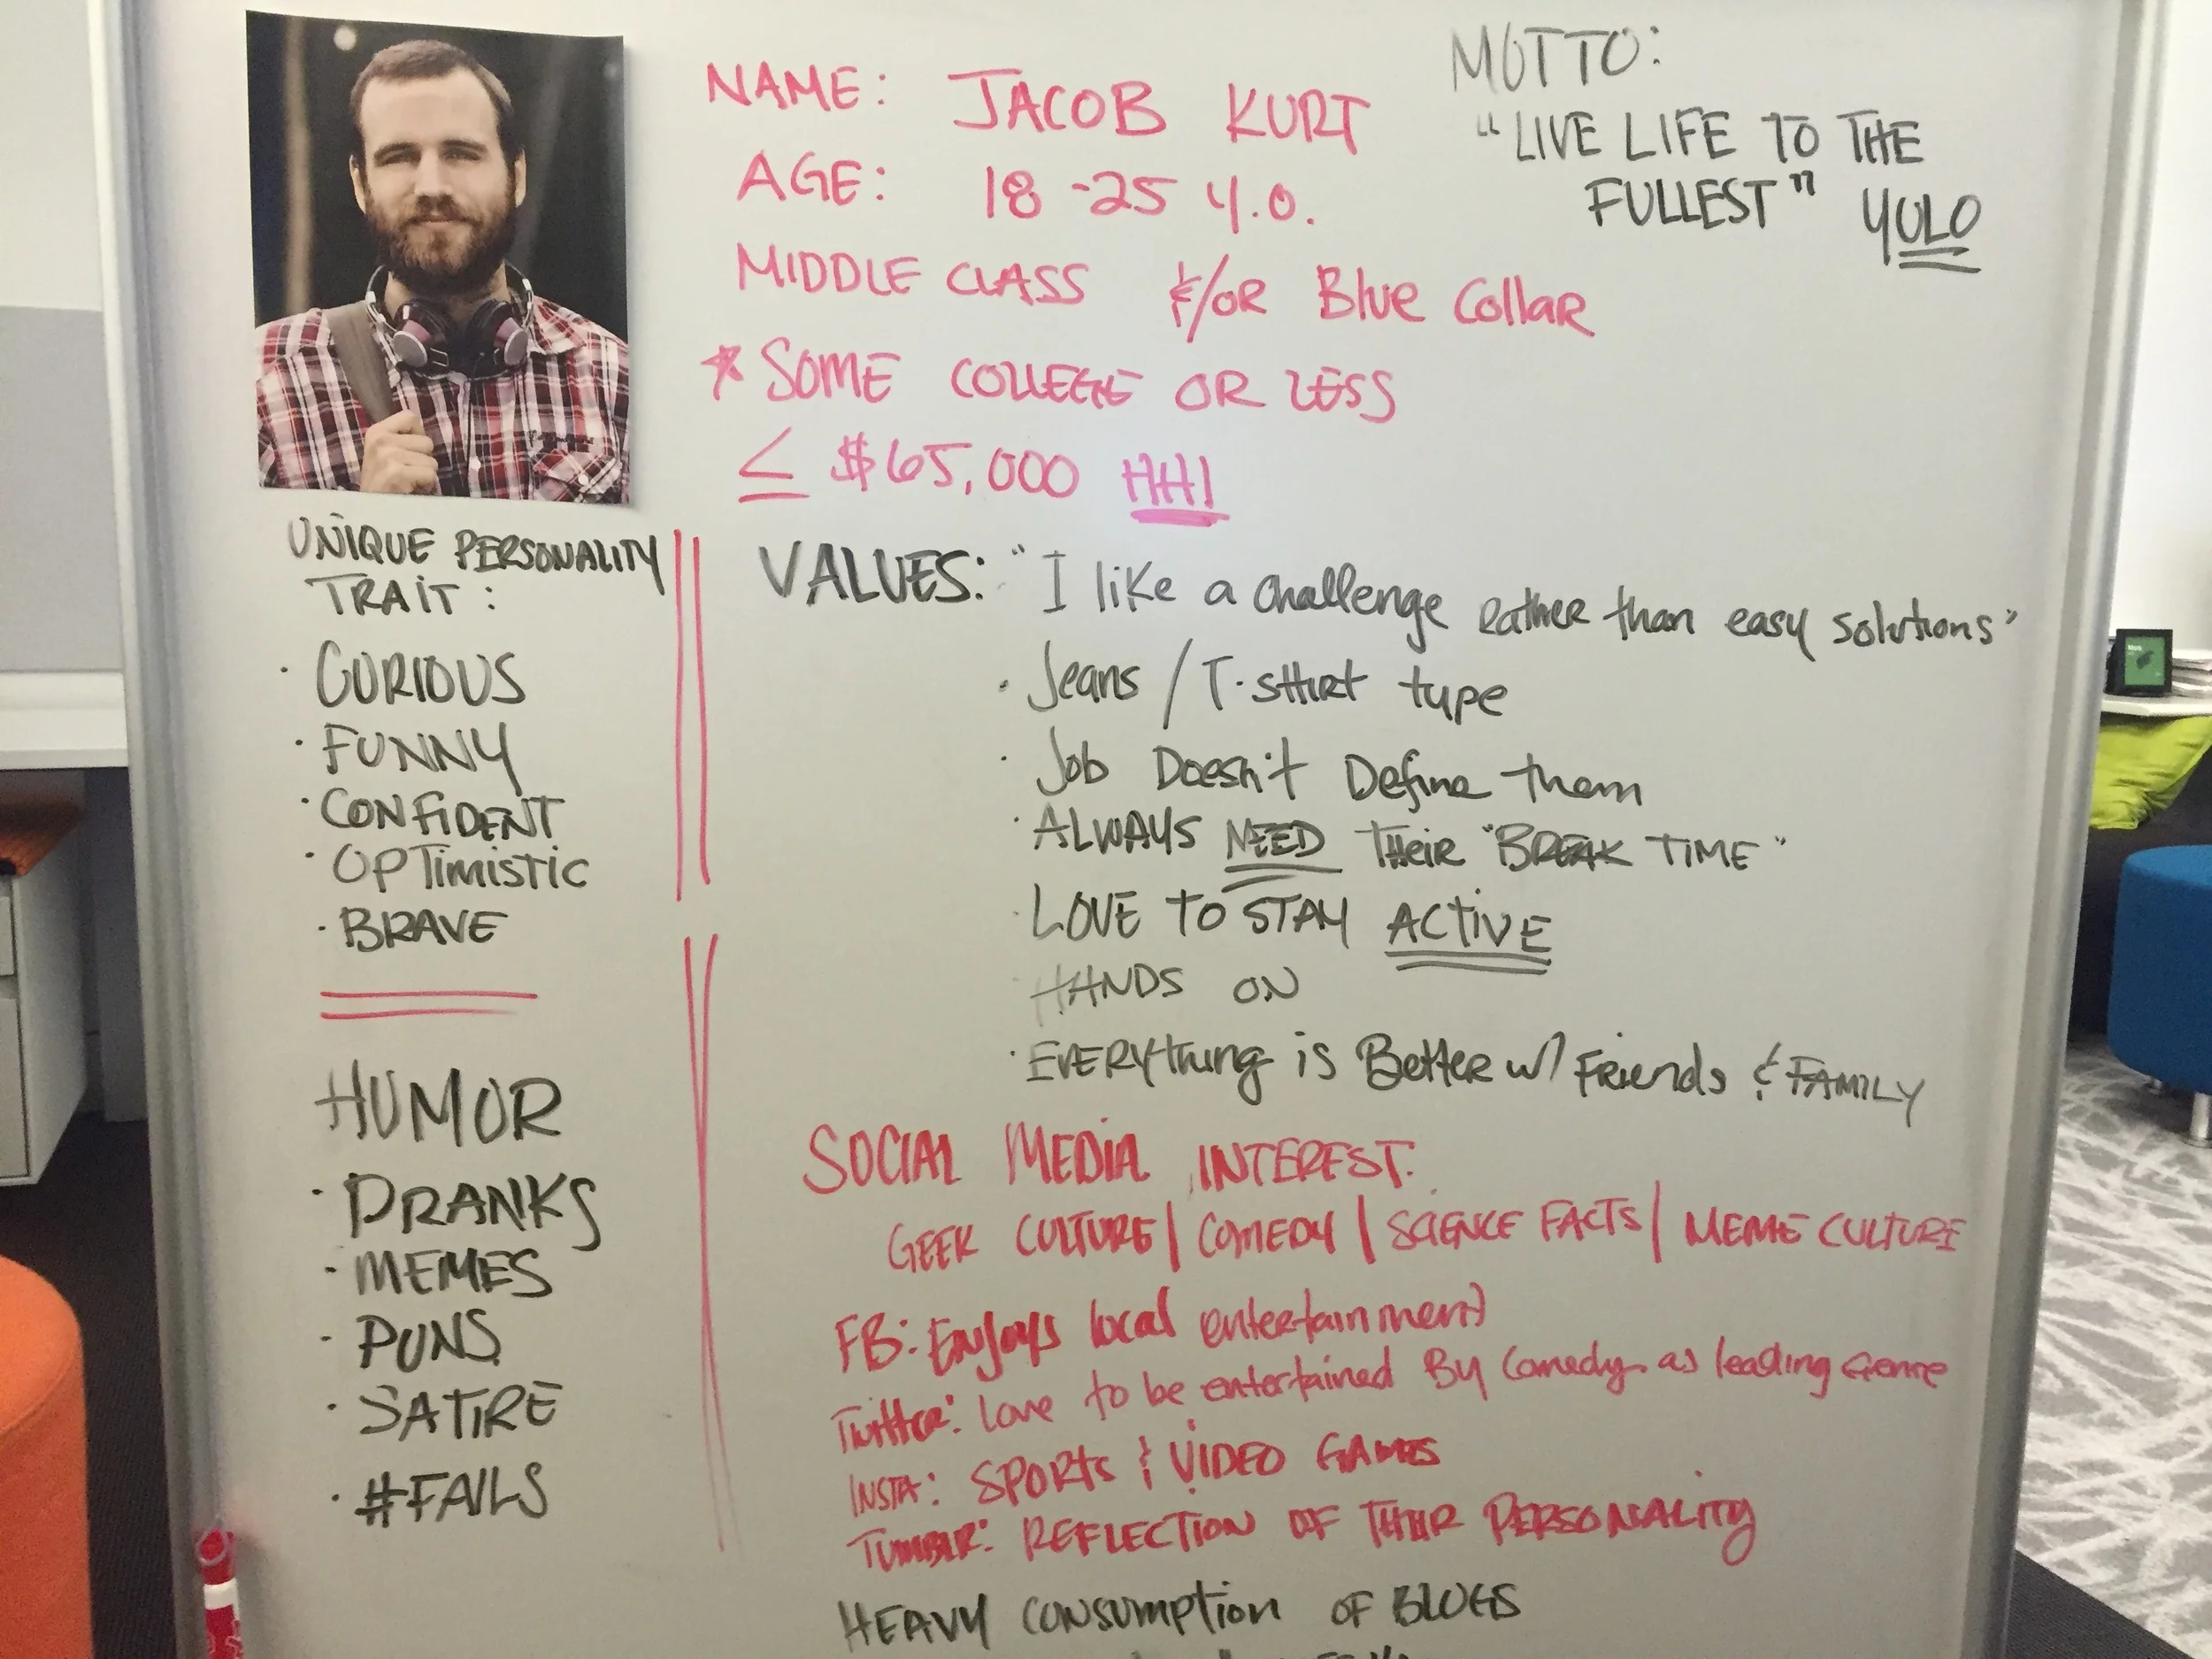 NAME: JACOB KURT
AGE: 18-25 Y.O.
MIDDLE CLASS &/OR Blue Collar
* SOME COLLEGE OR LESS
≤ $65,000 HHI
MOTTO:
"LIVE LIFE TO THE
FULLEST" YOLO
UNIQUE PERSONALITY
TRAIT:
· CURIOUS
· FUNNY
· CONFIDENT
· OPTimistic
· BRAVE
HUMOR
· PRANKS
- MEMES
- PUNS
· SATIRE
· #FAILS
VALUES: "I like a challenge rather than easy solutions"
· Jeans / T-shirt type
· Job Doesn't Define them
· ALWAYS NEED Their "BREAK TIME"
· LOVE TO STAY ACTIVE
HANDS ON
· EVERYthing is Better w/ Friends & FAMILY
SOCIAL MEDIA INTEREST:
GEEK CULTURE | COMEDY | SCIENCE FACTS | MEME CULTURE
FB: Enjoys local entertainment
Twitter: Love to be entertained By Comedy as leading Genre
INSTA: SPORTS & VIDEO GAMES
TUMBLR: REFLECTION OF THEIR PERSONALITY
HEAVY CONSUMPTION OF BLOGS